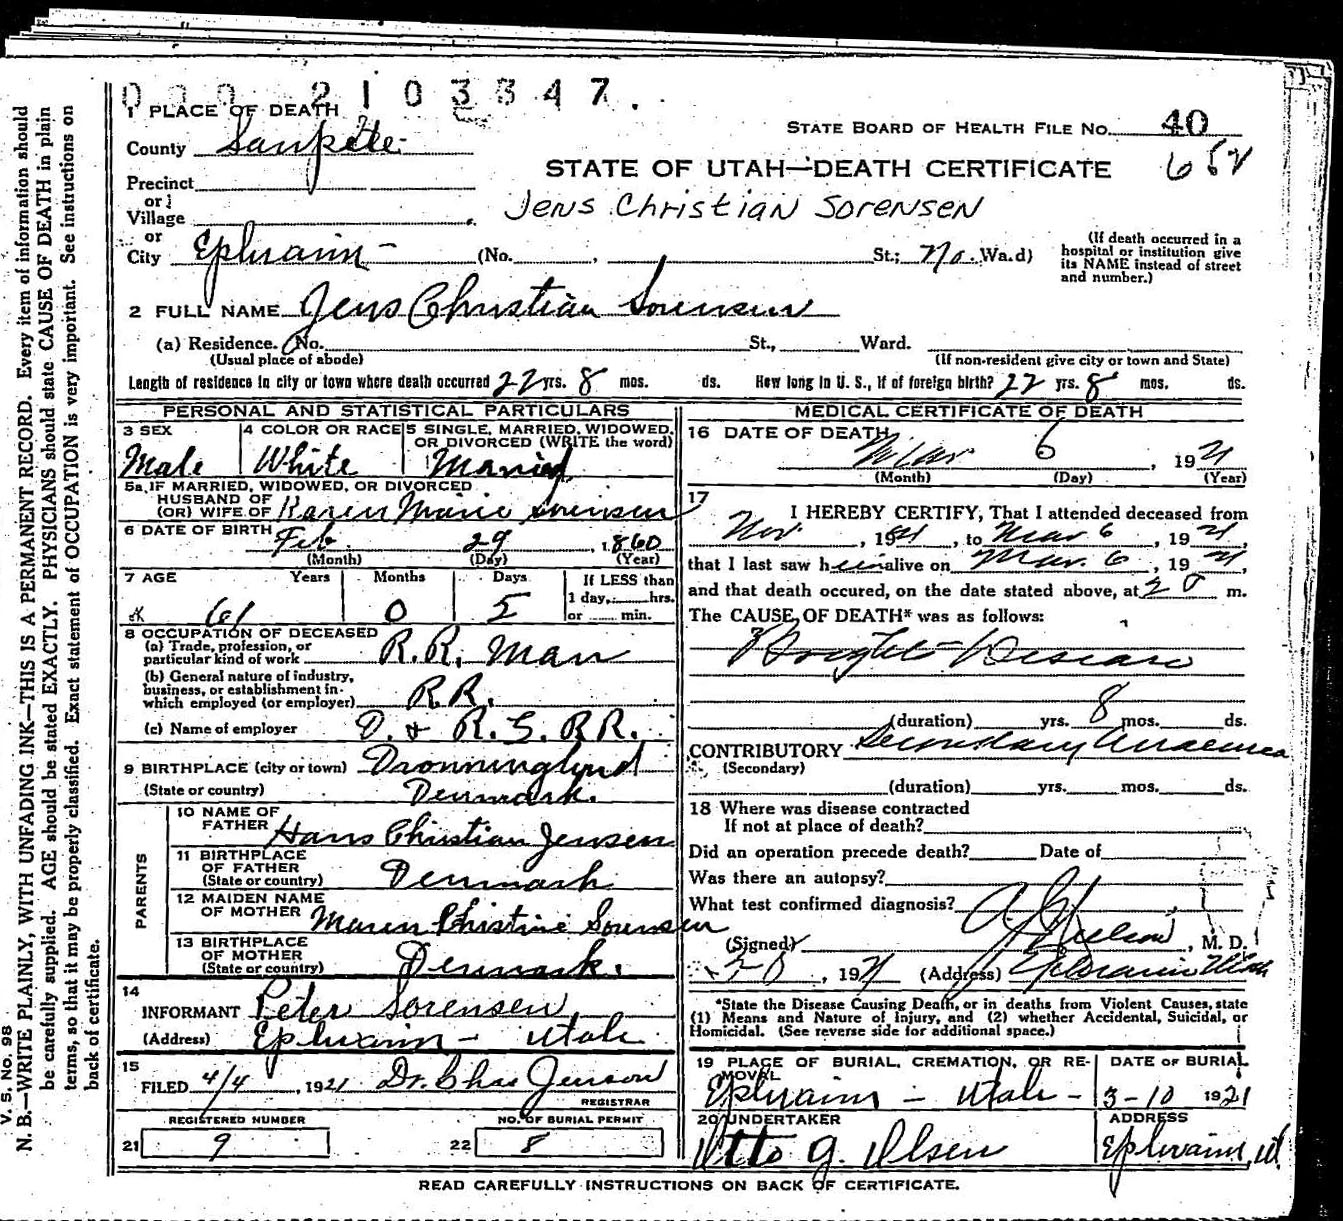 0 0 0 2 1 0 3 3 4 7 .
1 PLACE OF DEATH
County Sanpete
STATE BOARD OF HEALTH FILE NO. 40
652
STATE OF UTAH—DEATH CERTIFICATE
Precinct
or
Village
Jens Christian Sorensen
or
City Ephraim (No. St.; No. Ward)
(If death occurred in a
hospital or institution give
its NAME instead of street
and number.)
2 FULL NAME Jens Christian Sorensen
(a) Residence. No. St., Ward.
(Usual place of abode)
(If non-resident give city or town and State)
Length of residence in city or town where death occurred 22 yrs. 8 mos. ds. How long in U. S., if of foreign birth? 22 yrs. 8 mos. ds.
PERSONAL AND STATISTICAL PARTICULARS
3 SEX
Male
4 COLOR OR RACE
White
5 SINGLE, MARRIED, WIDOWED,
OR DIVORCED (WRITE the word)
Married
5a. IF MARRIED, WIDOWED, OR DIVORCED
HUSBAND OF
(OR) WIFE OF Karen Marie Sorensen
6 DATE OF BIRTH Feb 29, 1860
(Month) (Day) (Year)
7 AGE Years Months Days
61 0 5
If LESS than
1 day, hrs.
or min.
8 OCCUPATION OF DECEASED
(a) Trade, profession, or
particular kind of work R.R. Man
(b) General nature of industry,
business, or establishment in-
which employed (or employer) R.R.
(c) Name of employer D. & R. G. RR.
9 BIRTHPLACE (city or town) Dronninglund
(State or country) Denmark.
PARENTS
10 NAME OF
FATHER Hans Christian Jensen
11 BIRTHPLACE
OF FATHER
(State or country) Denmark
12 MAIDEN NAME
OF MOTHER Maren Christine Sorensen
13 BIRTHPLACE
OF MOTHER
(State or country) Denmark.
14
INFORMANT Peter Sorensen
(Address) Ephraim - Utah
15
FILED 4/4, 1921 Dr. Chas Jenson
REGISTRAR
REGISTERED NUMBER
21 9
NO. OF BURIAL PERMIT
22 8
MEDICAL CERTIFICATE OF DEATH
16 DATE OF DEATH
Mar 6, 1921
(Month) (Day) (Year)
17
I HEREBY CERTIFY, That I attended deceased from
Nov, 19, to Mar 6, 1921,
that I last saw him alive on Mar. 6, 1921,
and that death occured, on the date stated above, at m.
The CAUSE OF DEATH* was as follows:
Brights Disease
(duration) yrs. 8 mos. ds.
CONTRIBUTORY Secondary Anaemea
(Secondary)
(duration) yrs. mos. ds.
18 Where was disease contracted
If not at place of death?
Did an operation precede death? Date of
Was there an autopsy?
What test confirmed diagnosis?
(Signed) Nielson, M. D.
1921 (Address) Ephraim Utah
*State the Disease Causing Death, or in deaths from Violent Causes, state
(1) Means and Nature of Injury, and (2) whether Accidental, Suicidal, or
Homicidal. (See reverse side for additional space.)
19 PLACE OF BURIAL, CREMATION, OR RE-
MOVAL
Ephraim - Utah -
DATE OF BURIAL
3-10 1921
20 UNDERTAKER
Otto G. Olsen
ADDRESS
Ephraim, Ut
READ CAREFULLY INSTRUCTIONS ON BACK OF CERTIFICATE.
V. S. No. 98
N. B.—WRITE PLAINLY, WITH UNFADING INK—THIS IS A PERMANENT RECORD. Every item of information should
be carefully supplied. AGE should be stated EXACTLY. PHYSICIANS should state CAUSE OF DEATH in plain
terms, so that it may be properly classified. Exact statement of OCCUPATION is very important. See instructions on
back of certificate.